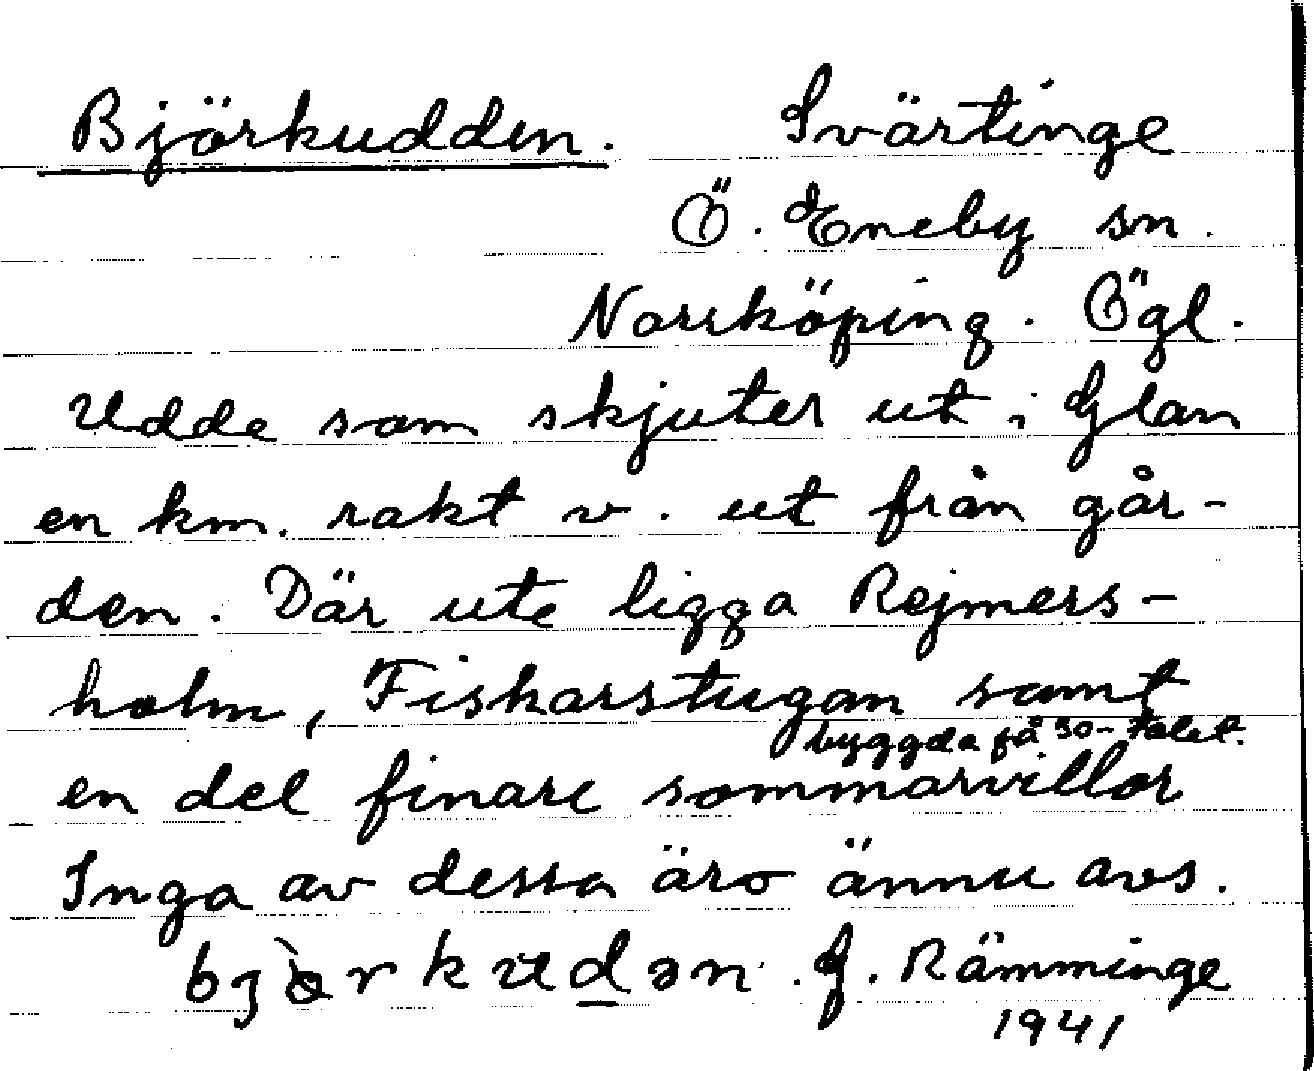 Björkudden. Svärtinge
Ö. Eneby sn.
Norrköping. Ögl.
Udde som skjuter ut i Glan
en km. rakt v. ut från går-
den. Där ute ligga Rejmers-
holm, Fiskarstugan samt
byggda på 30-talet.
en del finare sommarvillor
Inga av dessa äro ännu avs.
G. Rämminge
1941